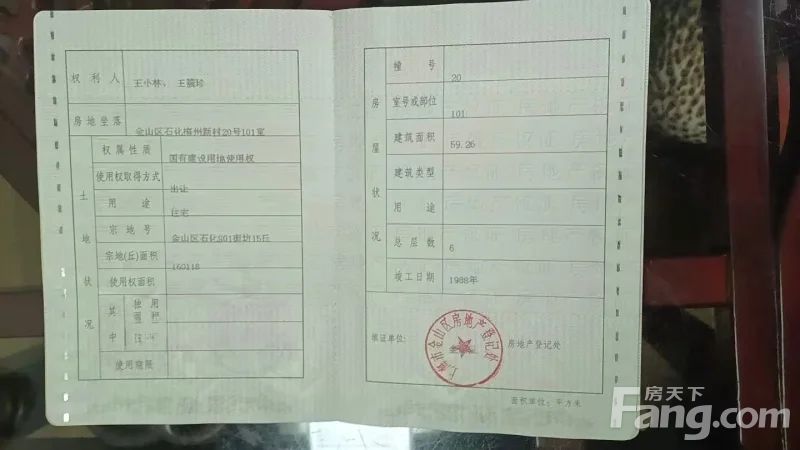 权利人 王小林、王 珍
房地坐落 金山区石化梅州新村20号101室
土地状况
权属性质 国有建设用地使用权
使用权取得方式 出让
用途 住宅
宗地号 金山区石化S01街坊15丘
宗地(丘)面积 160118
使用权面积
其中
独用面积
使用期限
房屋状况
幢号 20
室号或部位 101
建筑面积 59.26
建筑类型
用途
总层数 6
竣工日期 1988年
填证单位: 房地产登记处
上海市金山区房地产登记处
面积单位: 平方米
房天下
Fang.com